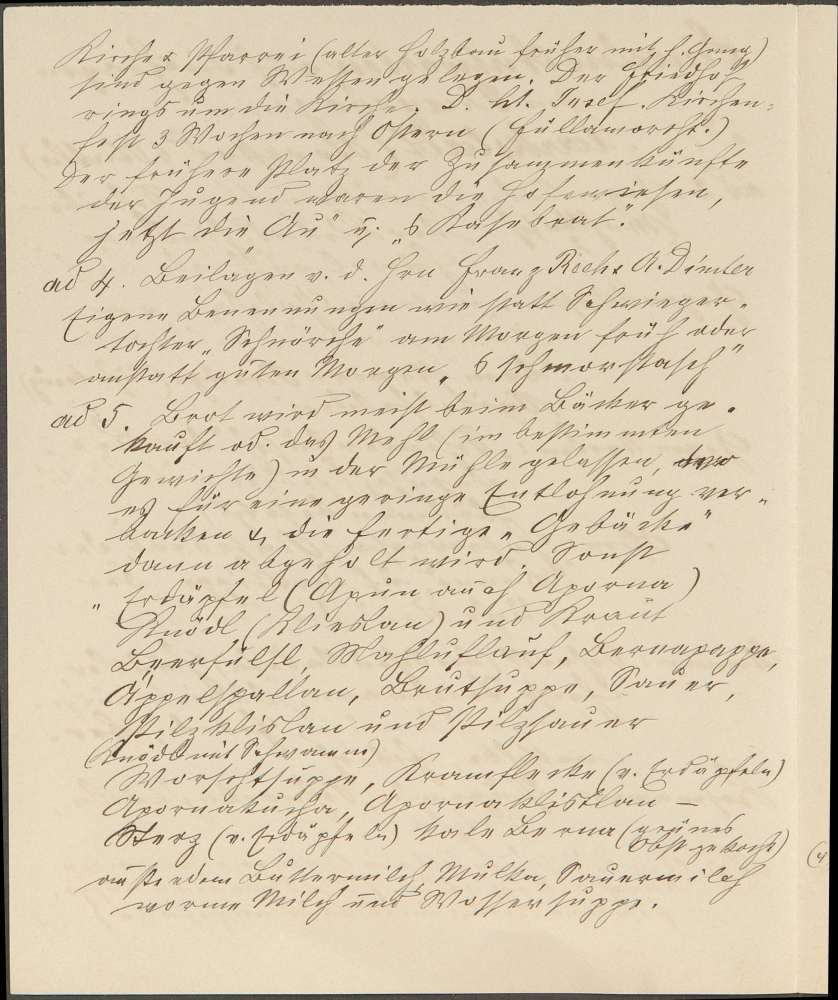 Kirche & Pfarrei (alter Holzbau früher mit h. Gang)
sind gegen Westen gelegen. Der Friedhof
rings um die Kirche. D. hl. Josef. Kirchen-
fest 3 Wochen nach Ostern (
Der frühere Platz der Zusammenkünfte
der Jugend waren die Hofewiesen,
jetzt die "Au" u. "s Kasebrat".
ad 4. Beilagen v. d. Hrn Franz Rech & A. Dimter
Eigene Benennungen wie statt Schwieger-
tochter "Schnörche" am Morgen früh oder
anstatt guten Morgen "s schmorstasch"
ad 5. Brot wird meist beim Bäcker ge-
kauft od. das Mehl (im bestimmten
Gewichte) in der Mühle gelassen,
es für eine geringe Entlohnung ver-
backen & die fertige "Gebäcke"
dann abgeholt wird. Sonst
"Erdäpfel (Apun auch Aporna)
Knödl (Klieslan) und Kraut
Beerfülsl, Mahluflauf, Bernapappe,
Äppelspallan, Brutsuppe, Sauer,
Pilzklislan und Pilzsauer
(Knödl mit Schwamm)
Worschtsuppe, Kramflecke (v. Erdäpfeln)
Apornakucha, Apornaklislan –
Sterz (v. Erdäpfeln) kale Berna (grünes
Obst gekocht)
außerdem Buttermilch, Mulka, Sauermilch
worme Milch und Wossersuppe.